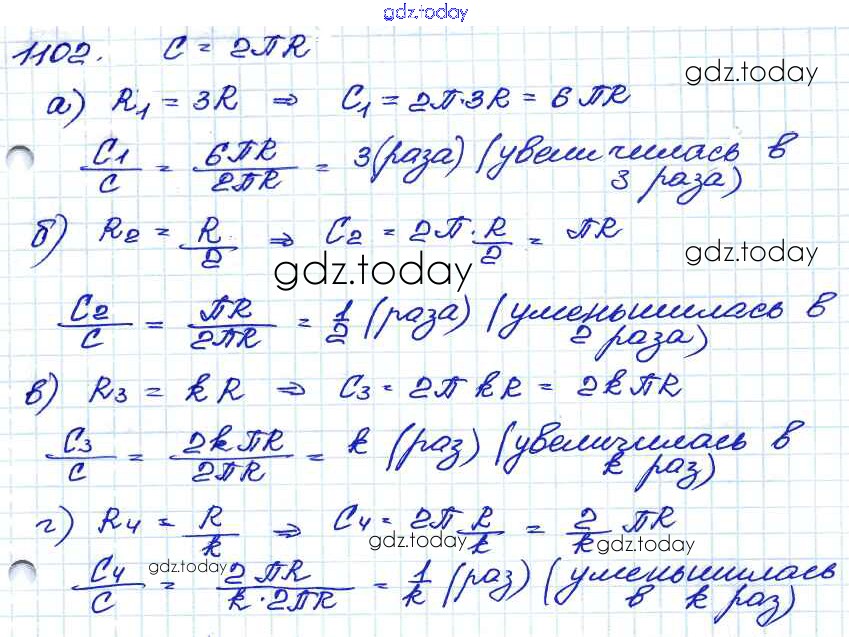 gdz.today
1102. C = 2πR
gdz.today
а) R₁ = 3R ⇒ C₁ = 2π·3R = 6πR
C₁/C = 6πR/2πR = 3(раза) (увеличилась в
3 раза)
б) R₂ = R/2 ⇒ C₂ = 2π·R/2 = πR
gdz.today
gdz.today
C₂/C = πR/2πR = 1/2 (раза) (уменьшилась в
2 раза)
в) R₃ = kR ⇒ C₃ = 2π kR = 2kπR
C₃/C = 2kπR/2πR = k (раз) (увеличилась в
k раз)
г) R₄ = R/k ⇒ C₄ = 2π R/k = 2/k πR
gdz.today
gdz.today
gdz.today
C₄/C = 2πR/k·2πR = 1/k (раз) (уменьшилась
в k раз)